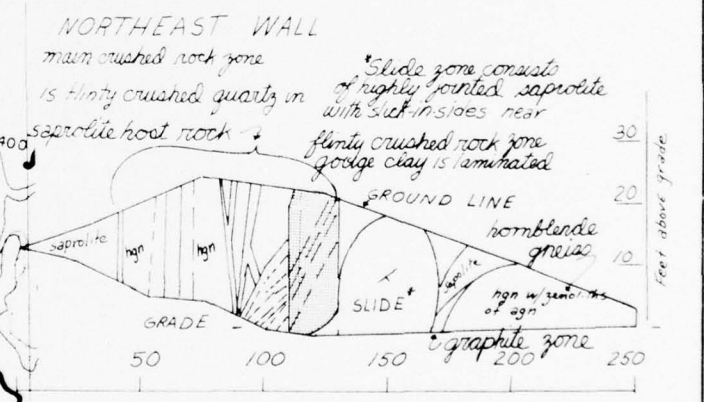 NORTHEAST WALL
main crushed rock zone
is flinty crushed quartz in
saprolite host rock
*Slide zone consists
of highly jointed saprolite
with slick-in-sides near
flinty crushed rock zone
gouge clay is laminated
400
30
20
10
Feet above grade
GROUND LINE
hornblende
gneiss
saprolite
hgn
hgn
SLIDE*
saprolite
hgn w/ xenoliths
of agn
GRADE
graphite zone
50
100
150
200
250